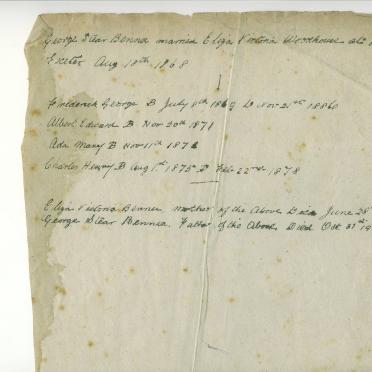 George Stear Benner married Eliza Victoria Woodhouse at
Exeter Aug 18th 1868
Frederick George B July 8th D Nov 21st
Albert Edward B Nov 30th 1871
Ada Mary B Nov 11th
Charles Henry B Aug 1st 1875 D Feb 22nd 1878
Eliza Victoria Benner mother of the Above Died June 28
George Stear Benner Father of the Above Died Oct 31st 19